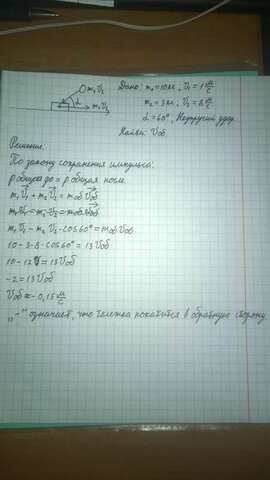 m₂ V₂ Дано: m₁ = 10кг, V₁ = 1 м/с
α m₁V₁ m₂ = 3кг, V₂ = 8 м/с
α = 60°, Неупругий удар
Найти: Vоб
Решение.
По закону сохранения импульса:
p общая до = p общая после.
m₁V₁ + m₂V₂ = mоб Vоб
m₁V₁ - m₂V₂ = mоб Vоб
m₁V₁ - m₂V₂ · cos60° = mоб Vоб
10 - 3 · 8 · cos60° = 13Vоб
10 - 12 = 13Vоб
-2 = 13Vоб
Vоб ≈ - 0,15 м/с
„-" означает, что тележка покатится в обратную сторону.